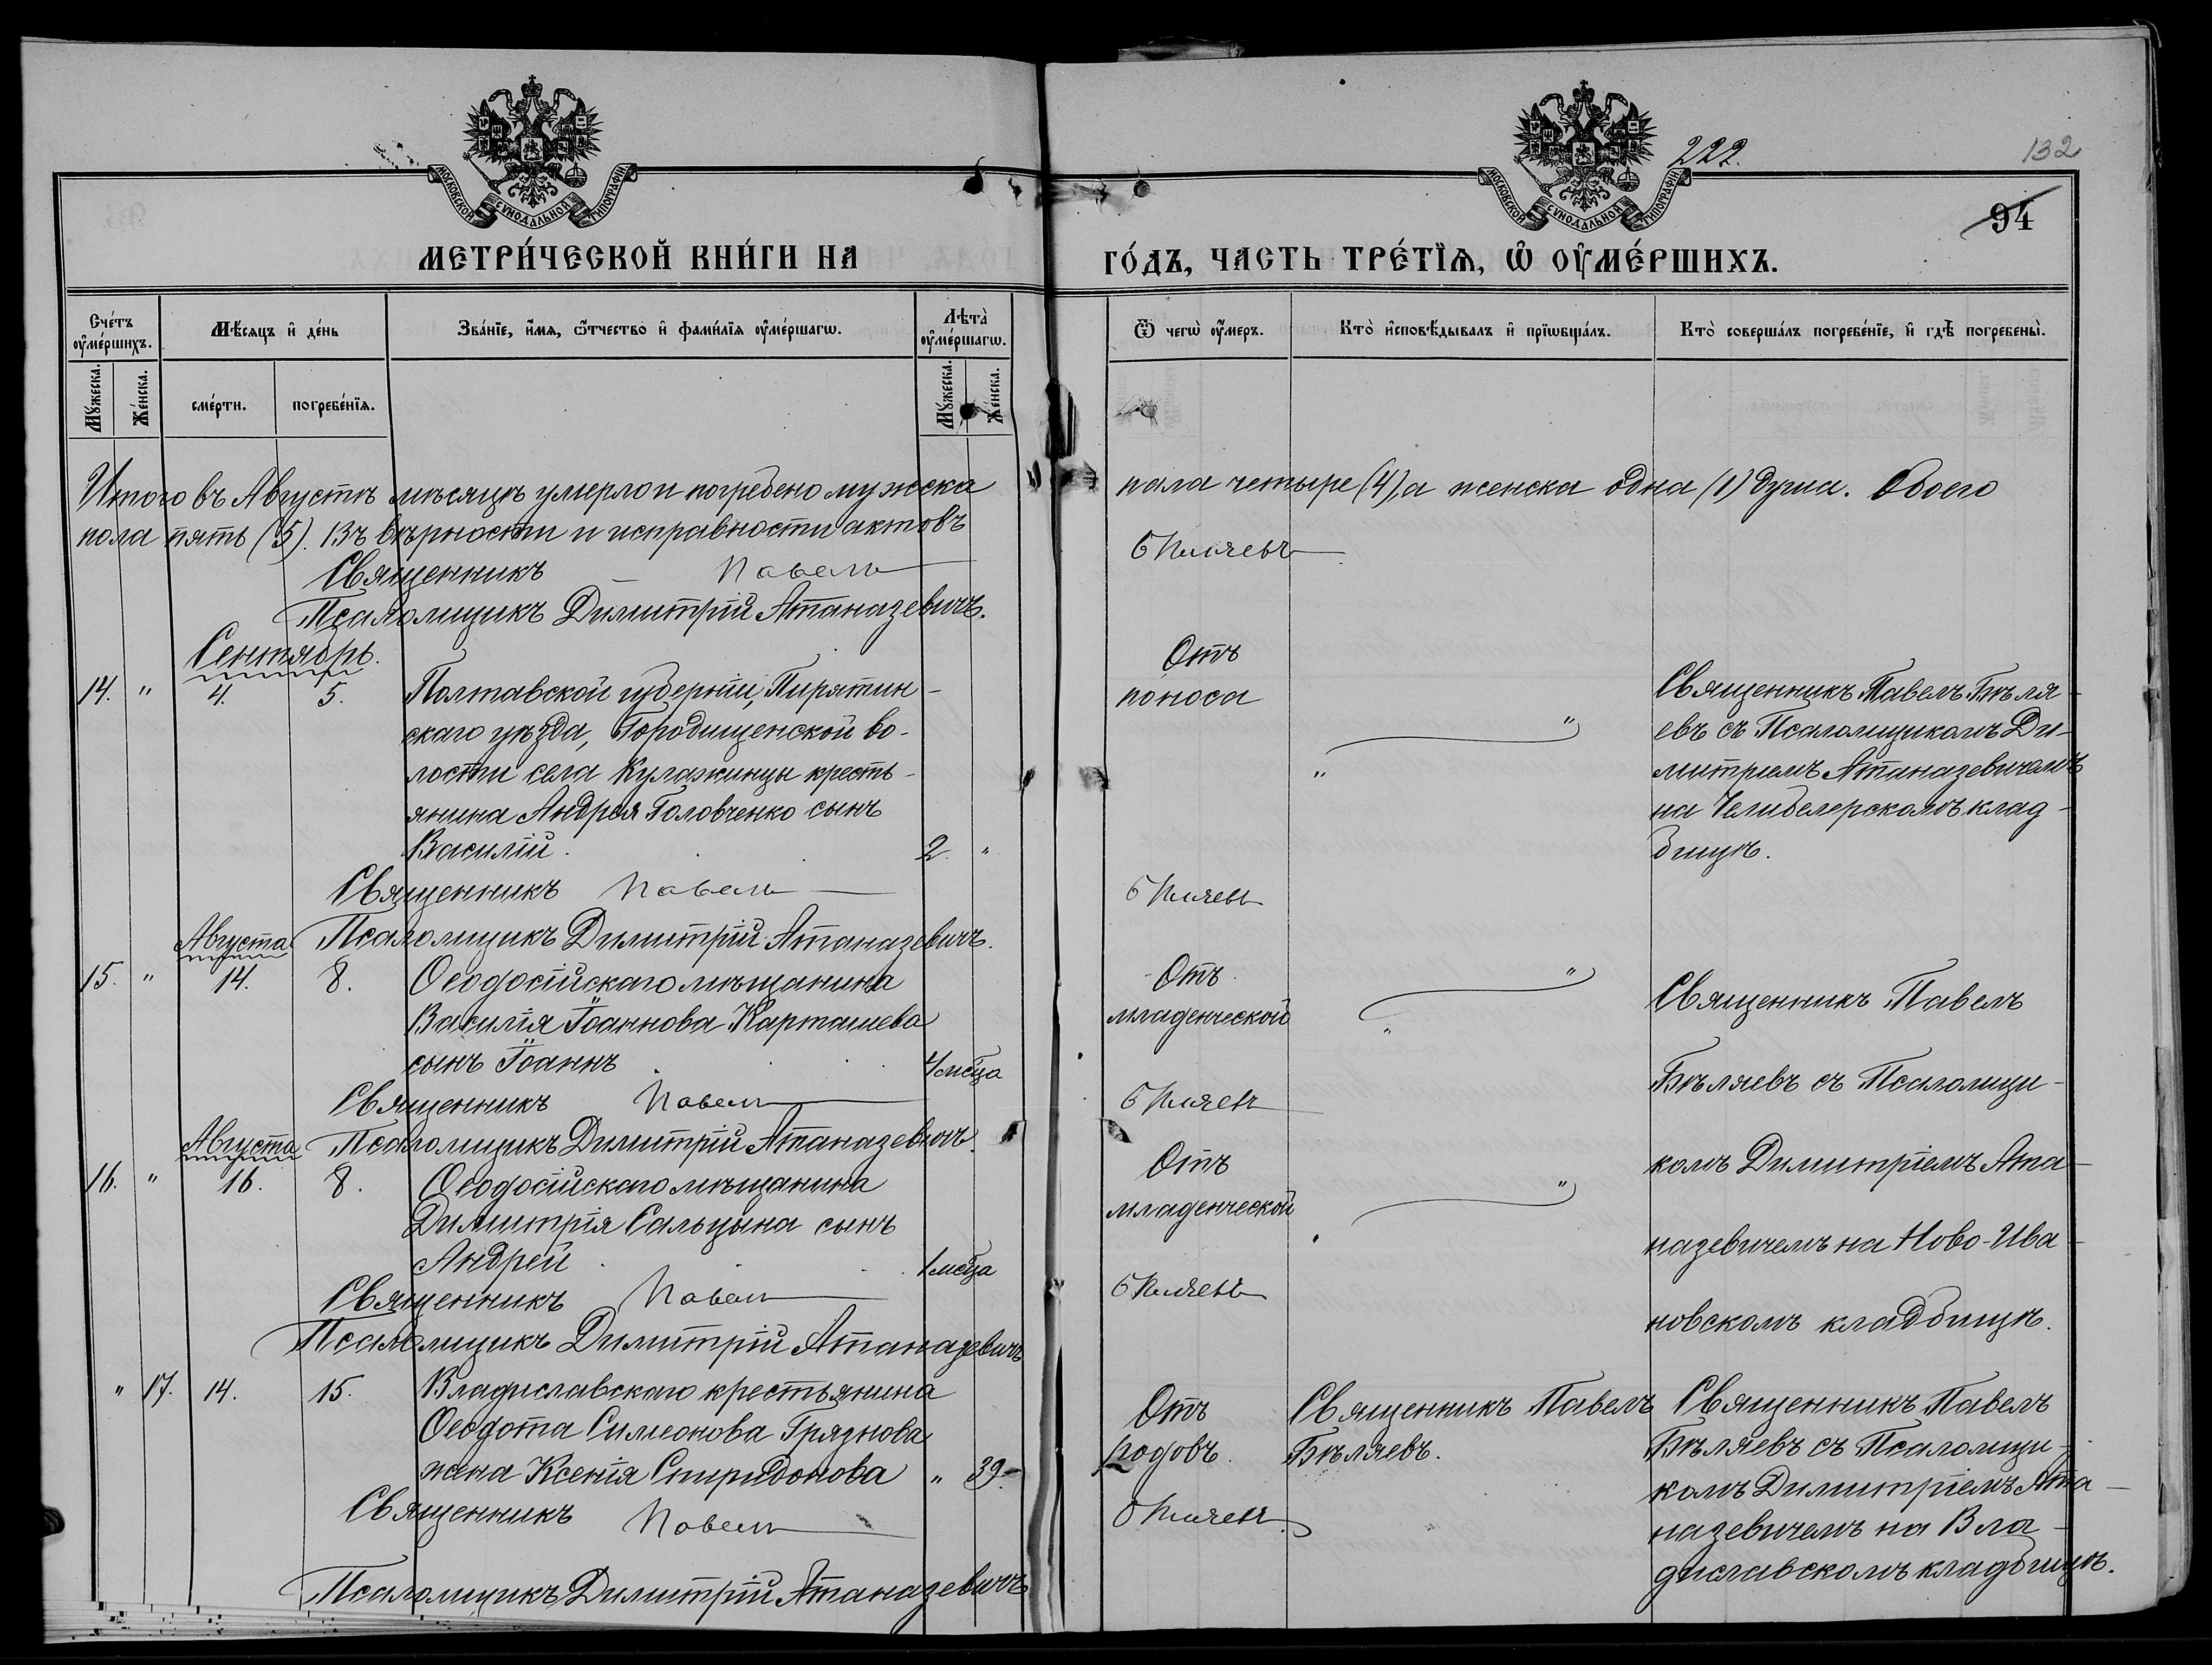 222.
132
94
МОСКОВСКОЙ СУНОДАЛЬНОЙ ТИПОГРАФІИ
МОСКОВСКОЙ СУНОДАЛЬНОЙ ТИПОГРАФІИ
МЕТРИ́ЧЕСКОЙ КНИ́ГИ НА ГО́ДЪ, ЧАСТЬ ТРЕ́ТЇѦ, Ѡ ОУ҆МЕ́РШИХЪ.
Сче́тъ оу҆ме́ршихъ.
Мѣ́сяцъ и҆ де́нь
Зва́нїе, и҆́мя, ѻ҆́тчество и҆ фами́лїя оу҆ме́ршагѡ.
Лѣта̀ оу҆ме́ршагѡ.
Ѿ чегѡ̀ оу҆́меръ.
Кто̀ и҆сповѣ́дывалъ и҆ прїѡбща́лъ.
Кто̀ соверша́лъ погребе́нїе, и҆ гдѣ̀ погребены̀.
Мꙋ́жеска.
Же́нска.
сме́рти.
погребе́нїя.
Мꙋ́жеска.
Же́нска.
Итого въ Августѣ мѣсяцѣ умерло и погребено мужска пола четыре (4), а женска одна (1) душа. Обоего
пола пять (5). Въ вѣрности и исправности актовъ
Священникъ Павелъ Бѣляевъ
Псаломщикъ Димитрій Атаназевичъ.
Сентябрь.
14. " 4. 5. Полтавской губерніи, Пирятин-
скаго уѣзда, Городищенской во-
лости села Кулажинцы кресть-
янина Андрея Головченко сынъ
Василій. 2. "
Отъ
поноса
" "
Священникъ Павелъ Бѣля-
евъ съ Псаломщикомъ Ди-
митріемъ Атаназевичемъ
на Челибелерскомъ клад-
бищѣ.
Священникъ Павелъ Бѣляевъ
Псаломщикъ Димитрій Атаназевичъ.
Августа
15. " 14. 8. Ѳеодосійскаго мѣщанина
Василія Іоаннова Карташева
сынъ Іоаннъ 4 мсца
Отъ
младенческой
" "
Священникъ Павелъ
Бѣляевъ съ Псаломщи-
комъ Димитріемъ Ата-
назевичемъ на Ново-Ива-
новскомъ кладбищѣ.
Священникъ Павелъ Бѣляевъ
Псаломщикъ Димитрій Атаназевичъ.
Августа
16. " 16. 8. Ѳеодосійскаго мѣщанина
Димитрія Сальцына сынъ
Андрей 1 мсца
Отъ
младенческой
"
Священникъ Павелъ Бѣляевъ
Псаломщикъ Димитрій Атаназевичъ
" 17. 14. 15. Владиславскаго крестьянина
Ѳеодота Симеонова Грязнова
жена Ксенія Спиридонова " 39.
Отъ
родовъ.
Священникъ Павелъ
Бѣляевъ.
Священникъ Павелъ
Бѣляевъ съ Псаломщи-
комъ Димитріемъ Ата-
назевичемъ на Вла-
диславскомъ кладбищѣ.
Священникъ Павелъ Бѣляевъ
Псаломщикъ Димитрій Атаназевичъ